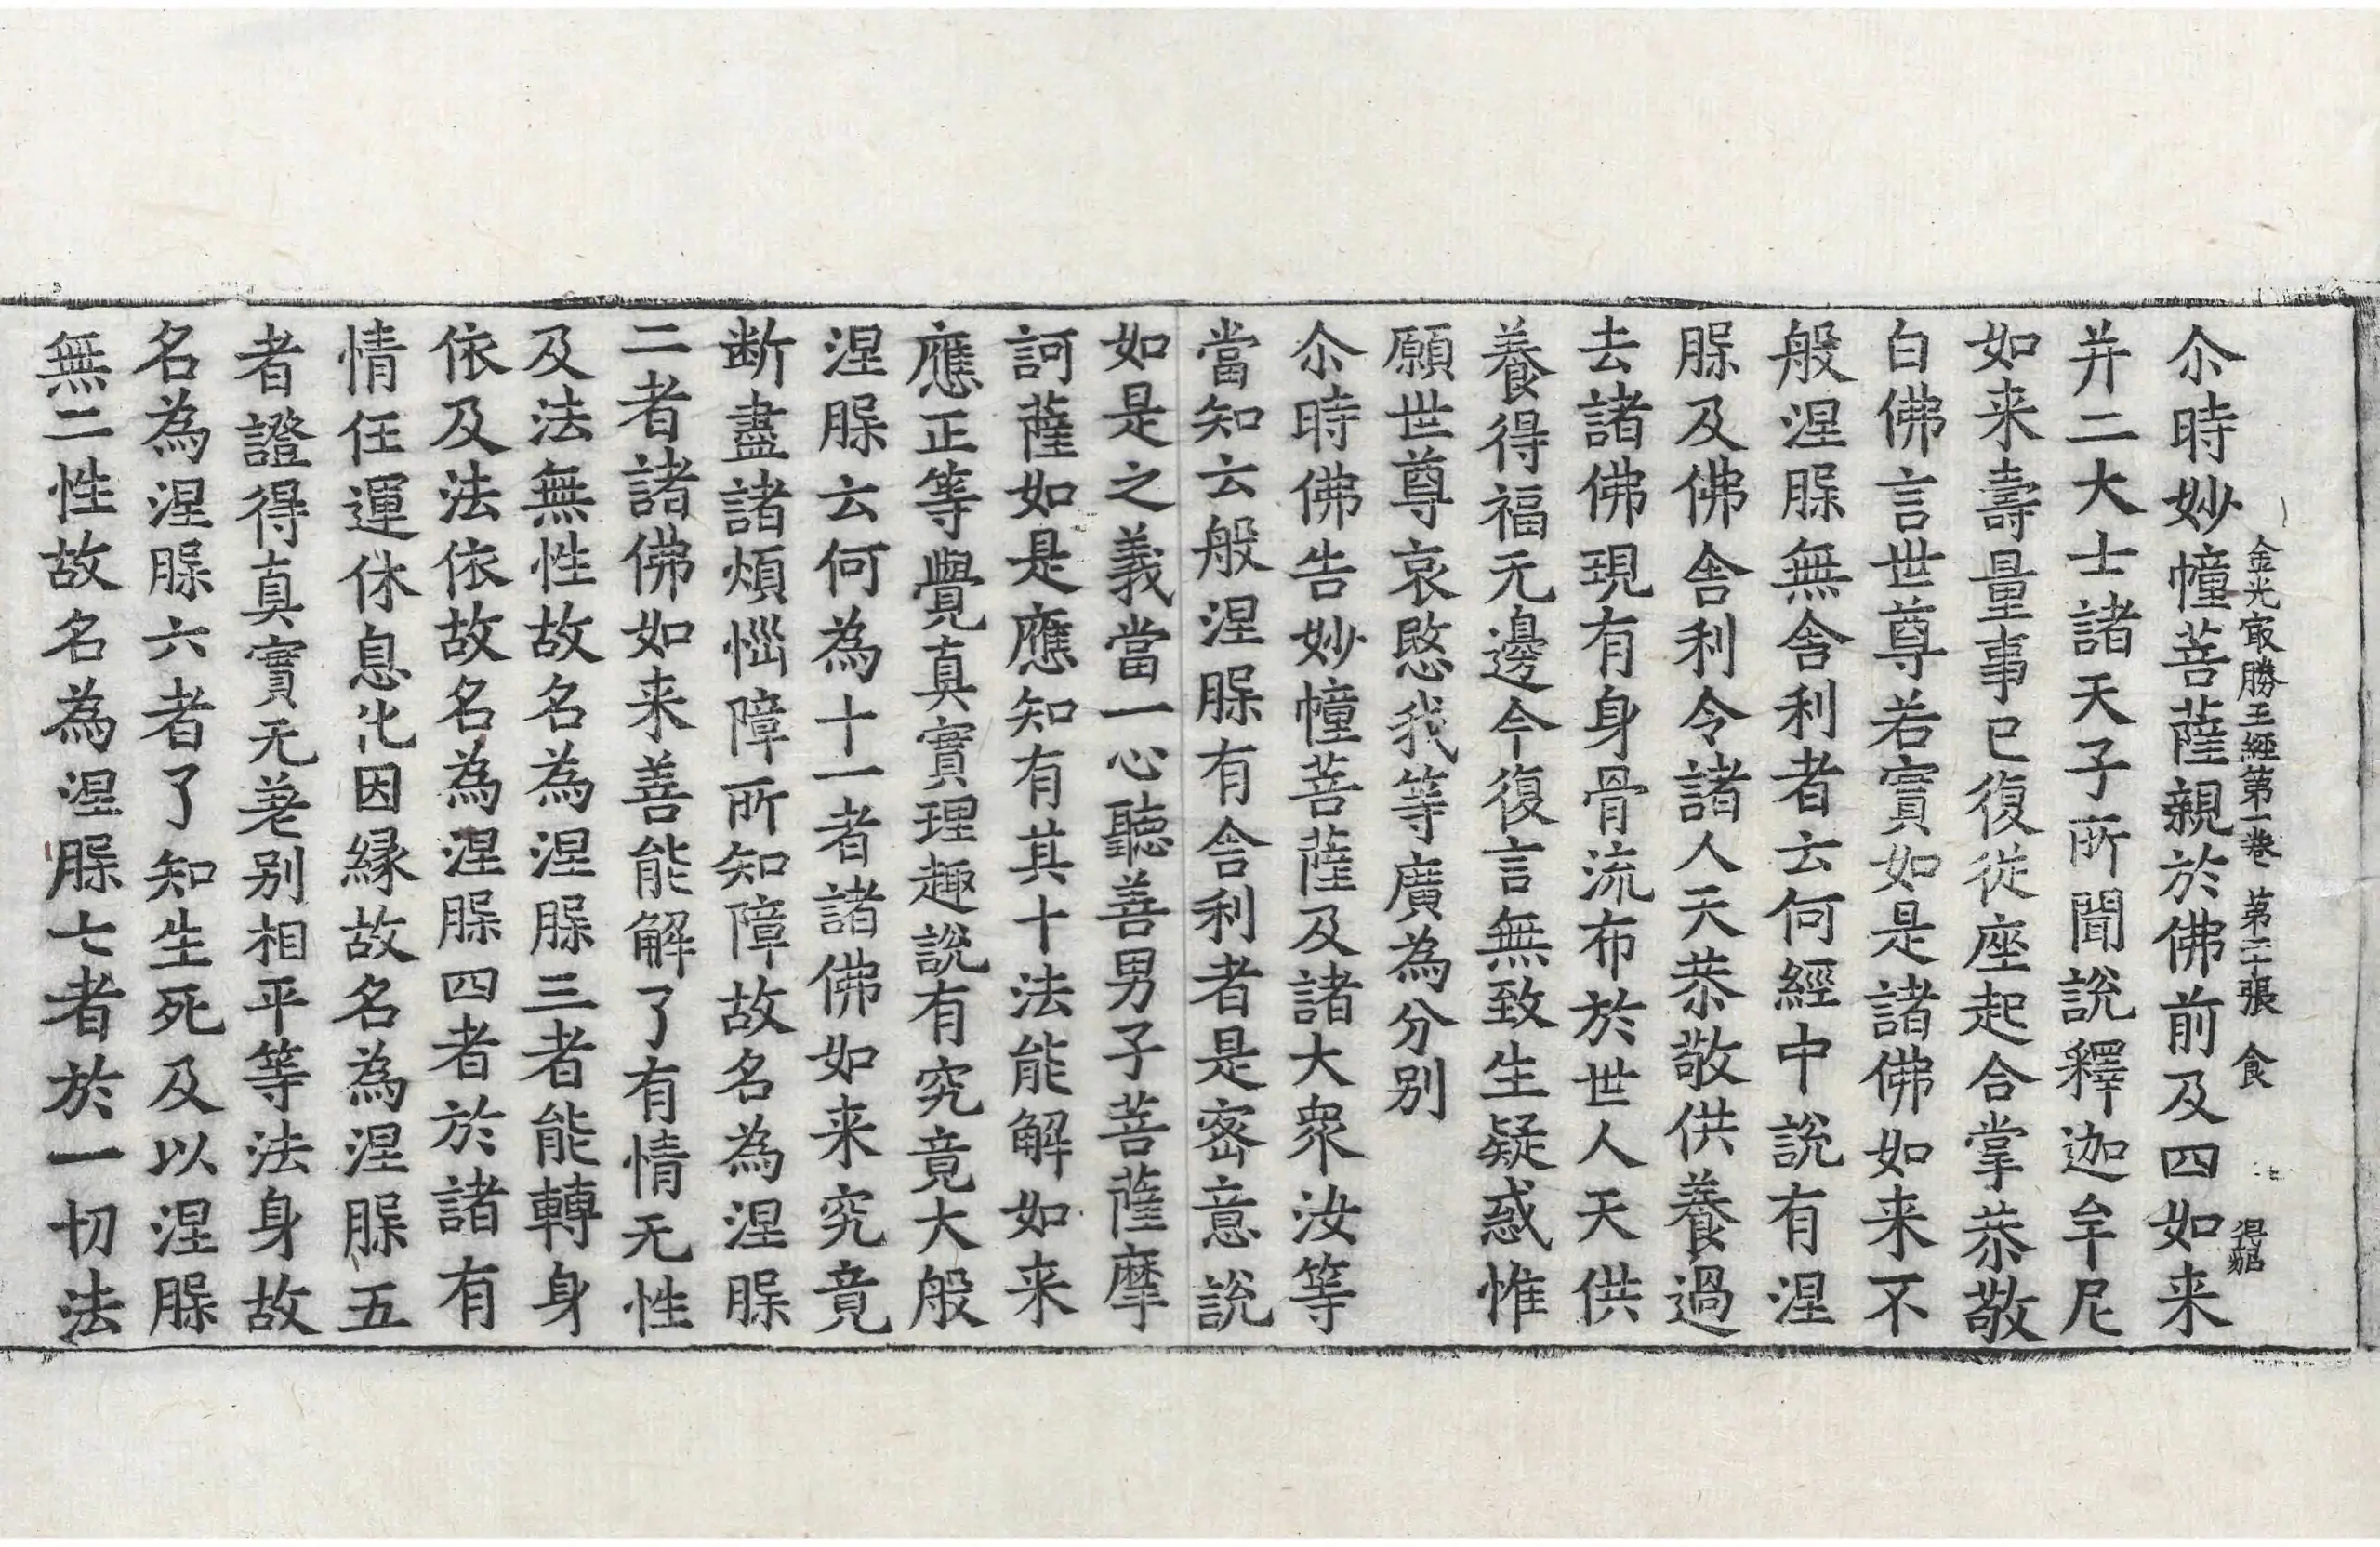 金光㝡勝王經第一卷 第二十張 食
尒時妙幢菩薩親於佛前及四如来
并二大士諸天子所聞說釋迦牟尼
如来壽量事已復從座起合掌恭敬
白佛言世尊若實如是諸佛如来不
般涅槃無舍利者云何經中說有涅
槃及佛舍利令諸人天恭敬供養過
去諸佛現有身骨流布於世人天供
養得福无邊今復言無致生疑惑惟
願世尊哀愍我等廣為分別
尒時佛告妙幢菩薩及諸大眾汝等
當知云般涅槃有舍利者是密意說
如是之義當一心聽善男子菩薩摩
訶薩如是應知有其十法能解如来
應正等覺真實理趣說有究竟大般
涅槃云何為十一者諸佛如来究竟
断盡諸煩惱障所知障故名為涅槃
二者諸佛如来善能解了有情无性
及法無性故名為涅槃三者能轉身
依及法依故名為涅槃四者於諸有
情任運休息化因緣故名為涅槃五
者證得真實无差別相平等法身故
名為涅槃六者了知生死及以涅槃
無二性故名為涅槃七者於一切法